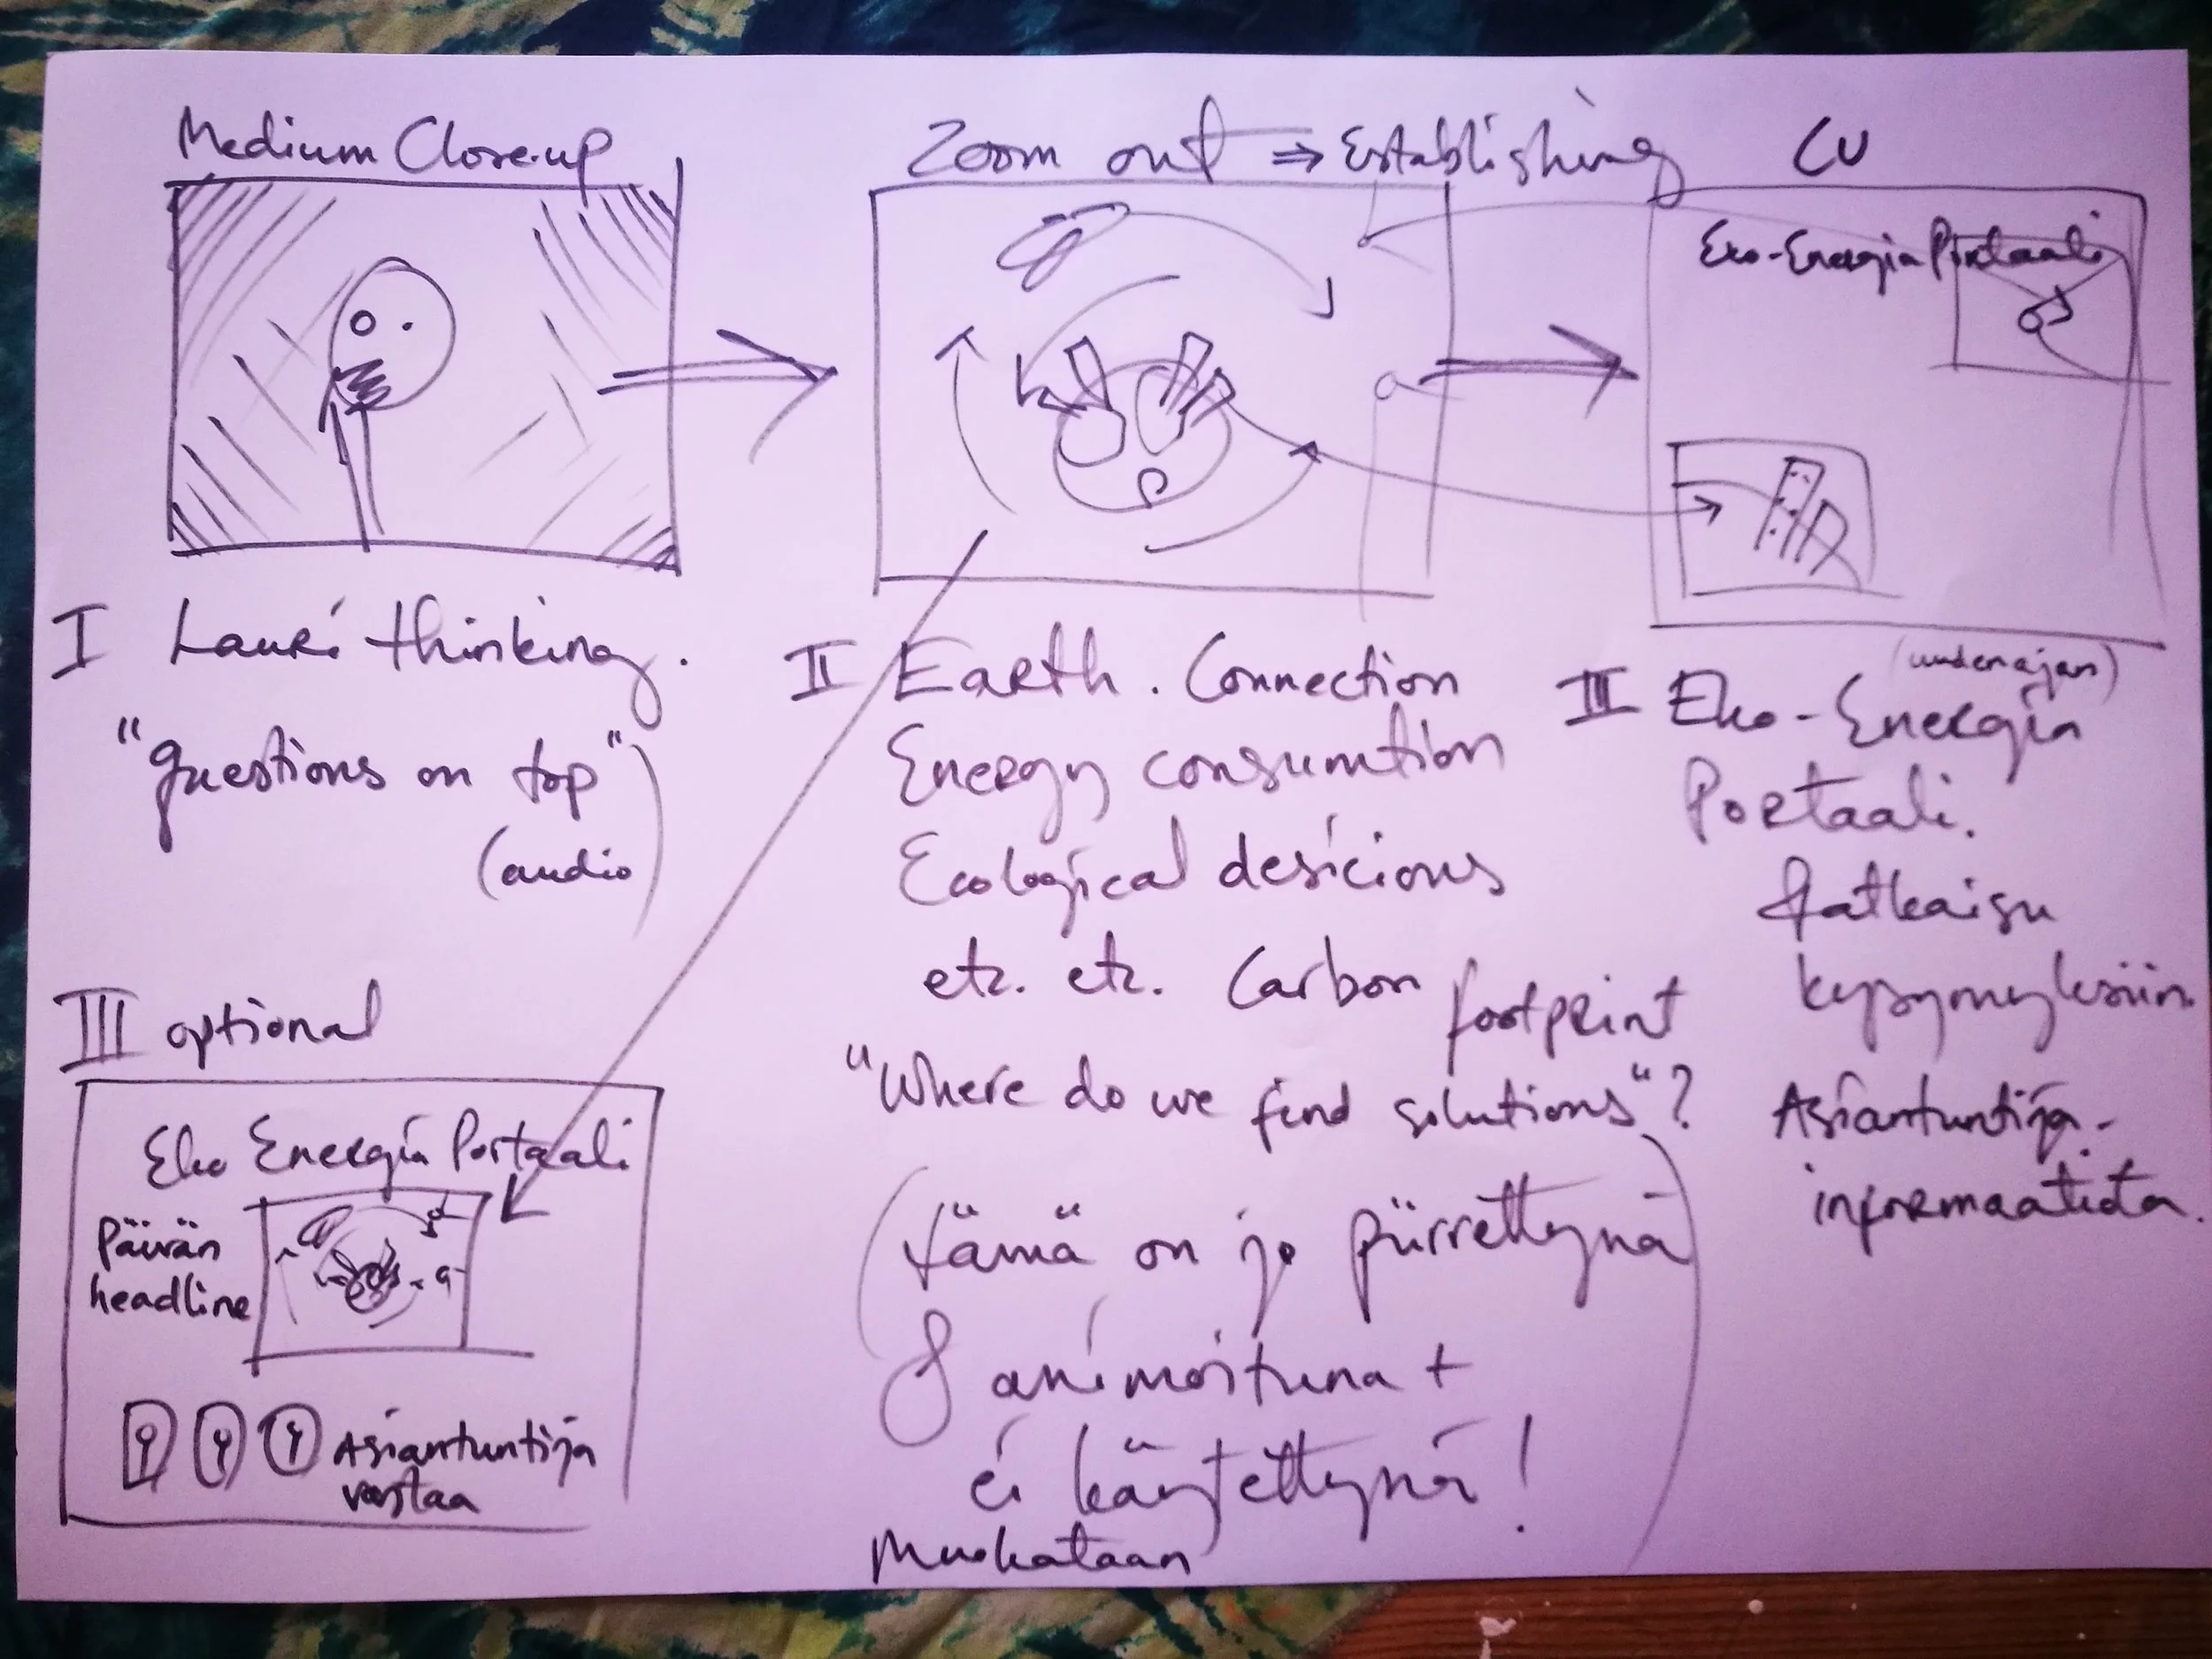 Medium Close-up
Zoom out ⇒ Establishing
CU
Eko-Energia Portaali
I Lauri thinking.
"questions on top"
(audio)
II Earth. Connection
Energy consumtion
Ecological desicions
etc. etc. Carbon footprint
"Where do we find solutions"?
(tämä on jo piirrettynä
& animoituna +
ei käytettynä!)
Muokataan
III Eko-Energia
(uudenajan)
Portaali.
Ratkaisu
kysymyksiin.
Asiantuntija-
informaatiota.
III optional
Eko Energia Portaali
Päivän
headline
Asiantuntija
vastaa